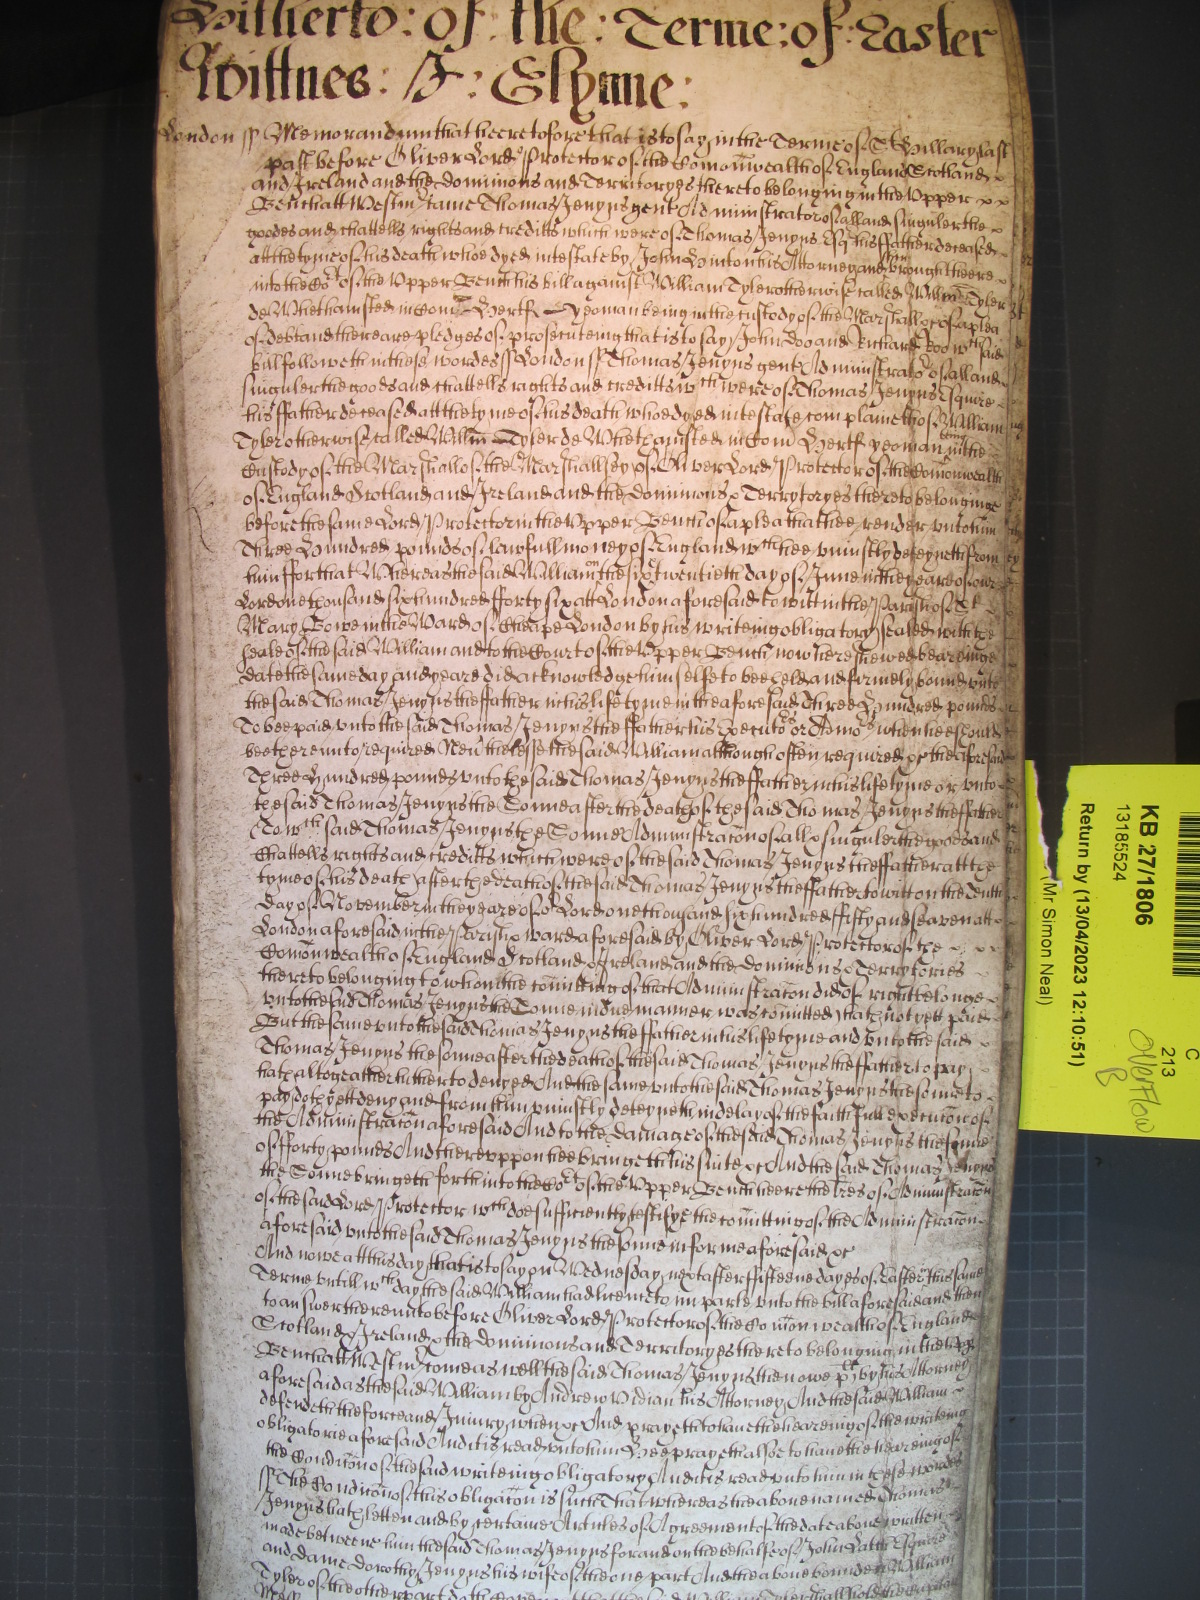 Hitherto: of: the: Terme: of: Easter
Wittnes: J: Glynne:
London ss Memorandum that heretofore that is to say in the Terme of St Hillary last
past before Oliver Lord Protector of the Comonwealth of England Scotland
and Ireland and the dominions and Territoryes thereto belonging in the Upper
Bench att Westmr came Thomas Jenyns gent Administrator of all and singuler the
goodes and chattells rights and creditts which were of Thomas Jenyns Esqr his ffather deceased
att the tyme of his death whoe dyed intestate by John Hinton his Attorney and brought here
into the Cort of the Upper Bench his bill against William Tyler otherwise called Willm Tyler
de Whethamsted in Com Hertf Yeoman being in the custody of the Marshall &c of a plea
of debt and there are pledges of prosecuteing that is to say John Doo and Richard Roo wch said
bill followeth in these wordes ss London ss Thomas Jenyns gent Administrator of all and
singuler the goods and chattells rights and creditts wch were of Thomas Jenyns Esquire
his ffather deceased att the tyme of his death whoe dyed intestate complaineth of William
Tyler otherwise called Willm Tyler de Whethamsted in Com Hertf yeoman being in the
Custody of the Marshall of the Marshallsey of Oliver Lord Protector of the Comonwealth
of England Scotland and Ireland and the dominions & Terrytoryes thereto belonginge
before the same Lord Protector in the Upper Bench of a plea that hee render unto him
Three Hundred pounds of lawfull money of England wch hee uniustly deteyneth from
him ffor that Whereas the said William on the six twentieth day of June in the yeare of our
Lord one thousand six hundred fforty six att London aforesaid to witt in the Parish of St
Mary Bowe in the Ward of Cheape London by his writeing obligatory sealed with the
seale of the said William and to the Court of the Upper Bench now here shewed beareinge
date the same day and yeare did acknowledge himselfe to bee held and firmely bound unto
the said Thomas Jenyns the ffather in his life tyme in the aforesaid Three Hundred pounds
To bee paid unto the said Thomas Jenyns the ffather his Executors or Admors when hee should
bee thereunto required Neverthelesse the said William although often required &c the aforesaid
Three Hundred pounds unto the said Thomas Jenyns the ffather in his life tyme or unto
the said Thomas Jenyns the Sonne after the death of the said Thomas Jenyns the ffather
(To wch said Thomas Jenyns the Sonne Administracon of all & singuler the goods and
Chattells rights and creditts which were of the said Thomas Jenyns the ffather att the
tyme of his death after the death of the said Thomas Jenyns the ffather to witt on the tenth
day of November in the yeare of or Lord one thousand six hundred ffifty and seaven att
London aforesaid in the Parish & ward aforesaid by Oliver Lord Protector of the
Comonwealth of England Scotland & Ireland and the dominions & Terrytories
thereto belonging to whom the comitting of that Administracon did of right belonge
unto the said Thomas Jenyns the Sonne in due manner was comitted) hath not yett paid
But the same unto the said Thomas Jenyns the ffather in his life tyme and unto the said
Thomas Jenyns the sonne after the death of the said Thomas Jenyns the ffather to pay
hath altogeather hitherto denyed And the same unto the said Thomas Jenyns the sonne to
pay doth yett deny and from him uniustly deteyneth in delay of the faithfull execucon of
the Administracon aforesaid And to the damage of the said Thomas Jenyns the sonne
of fforty pounds And thereuppon hee bringeth his suite &c And the said Thomas Jenyns
the Sonne bringeth forth into the Cort of the Upper Bench here the lres of Administracon
of the said Lord Protector wch doe sufficiently testifye the comitting of the Administracon
aforesaid unto the said Thomas Jenyns the sonne in forme aforesaid &c
And now att this day that is to say on Wednesday next after ffifteene dayes of Easter this same
Terme untill wch day the said William had licence to imparle unto the bill aforesaid and then
to answer thereunto before Oliver Lord Protector of the Comonwealth of England
Scotland & Ireland & the dominions and Territoryes thereto belonging in the Upper
Bench att Westmr come as well the said Thomas Jenyns the sonne by his Attorney
aforesaid as the said William by Andrew Vidian his Attorney And the said William
defendeth the force and Iniury when &c And prayeth to have the heareing of the writeing
obligatorie aforesaid And it is read unto him Hee prayeth alsoe to have the heareing of
the Condicon of the said writeing obligatory And it is read unto him in these wordes
ss The Condicon of this obligacon is such That whereas the above named Thomas
Jenyns hath letten and by certaine Articles of Agreement of the date above written
made betweene him the said Thomas Jenyns for and on the behalfe of John Latch Esquire
and dame Dorothy Jenyns his wife of the one part And the above bounden William
Tyler of the other part
KB 27/1806
13185524
Return by (13/04/2023 12:10:51)
(Mr Simon Neal)
C
213
Overflow
B